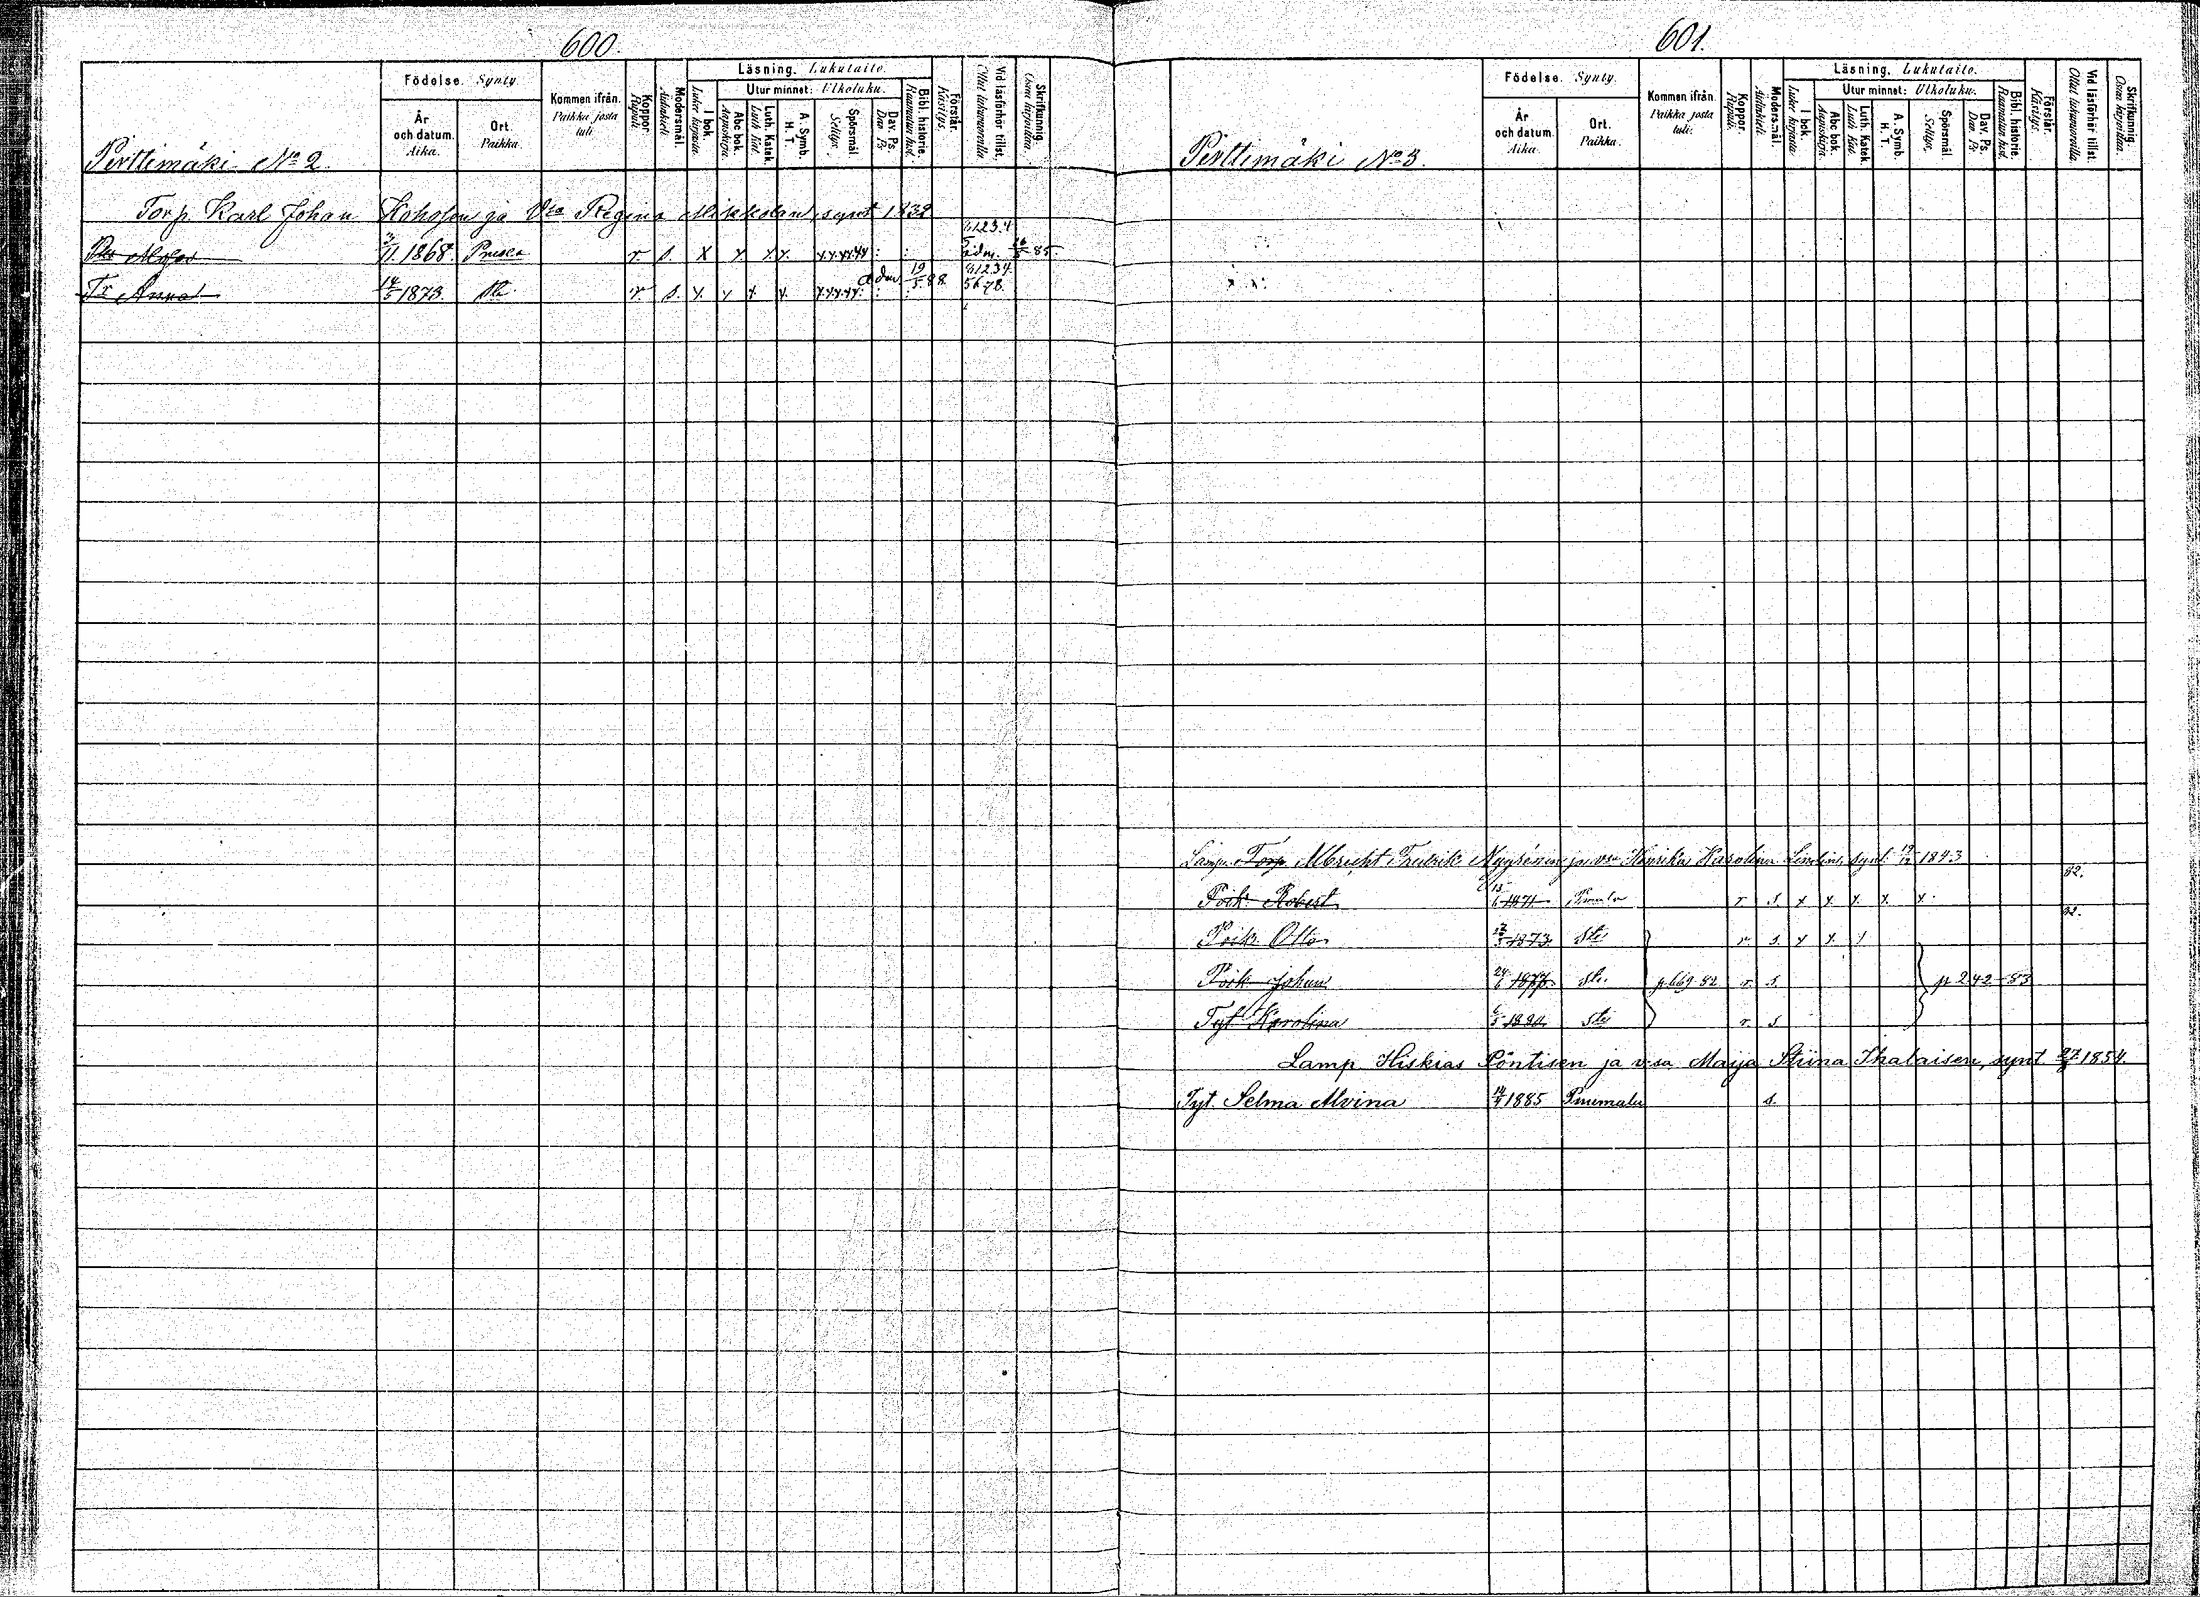 600.
Födelse. Synty
Kommen ifrån. Paikka josta tuli
Koppor. Rupuli.
Modersmål. Äidinkieli
Läsning. Lukutaito.
I bok. Lukee kirjasta.
Utur minnet: Ulkoluku.
Abc bok. Aapiskirja.
Luth. Katek. Luth. Kat.
A. Symb. H. T.
Spörsmål Selitys.
Dav. Ps. Dav. Ps.
Bibl. historie. Raamatun hist.
Förstår. Käsitys.
Vid läsförhör tillst. Ollut lukuvuorolla.
Skrifkunnig. Osaa kirjoittaa.
År och datum. Aika.
Ort. Paikka.
Perttimäki No 2.
Torp. Karl Johan Kohosen ja Vra Regina synt 1832
11. 1868. r. s. x x x x. 5 adm. 85.
Tr Anna 14/5 1873. r s. x. x x x. adm 19/5 88. 5678.
601.
Födelse. Synty.
Kommen ifrån. Paikka josta tuli:
Koppor. Rupuli.
Modersmål. Äidinkieli.
Läsning. Lukutaito.
I bok. Lukee kirjasta.
Utur minnet: Ulkoluku.
Abc bok. Aapiskirja.
Luth. Katek. Luth. Kat.
A. Symb. H. T.
Spörsmål Selitys.
Dav. Ps. Dav. Ps.
Bibl. historie. Raamatun hist.
Förstår. Käsitys.
Vid läsförhör tillst. Ollut lukuvuorolla.
Skrifkunnig. Osaa kirjoittaa.
År och datum. Aika.
Ort. Paikka.
Perttimäki No 3.
Lamp. Torp. Albrecht Fredrik Nygrénin ja vra Henrika Karolina synt. 19/12 1843
Poik. Robert 15/6 1871. r s x x x x x. 82.
Poik. Otto 1873. Ste r s. x x. x 82.
Poik Johan 24/6 1877. Ste. p. 669-82 r s. p 242-83
Tyt Karolina 1880. Ste r. s
Lamp. Hiskias Pöntisen ja v:sa Maija Stiina Ihalaisen, synt. 1854.
Tyt. Selma Alvina 1885 Puumala s.